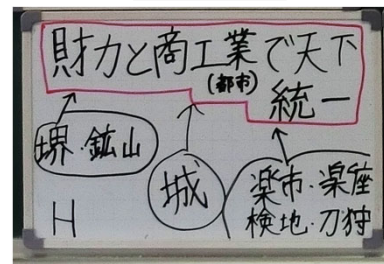 財力と商工業で天下
(都市)
統一
堺・鉱山
城
楽市・楽座
検地・刀狩
H